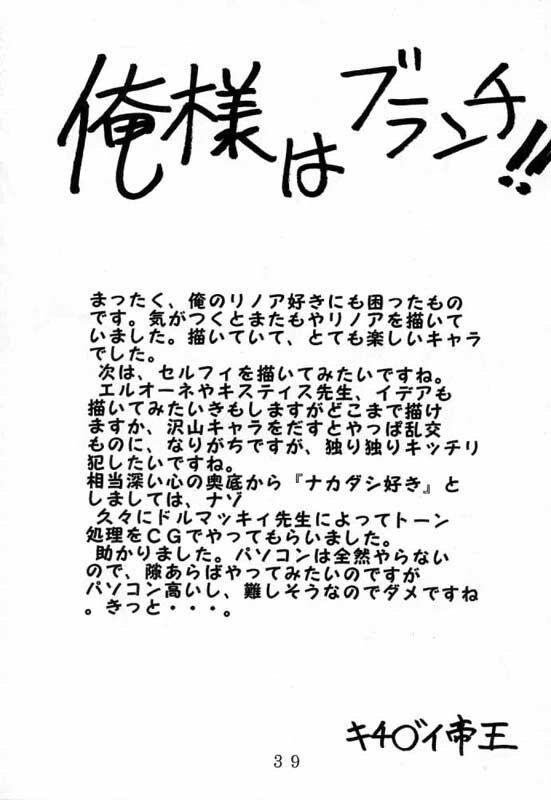 俺様はブランチ!!
まったく、俺のリノア好きにも困ったもの
です。気がつくとまたもやリノアを描いて
いました。描いていて、とても楽しいキャラ
でした。
次は、セルフィを描いてみたいですね。
エルオーネやキスティス先生、イデアも
描いてみたいきもしますがどこまで描け
ますか、沢山キャラをだすとやっぱ乱交
ものに、なりがちですが、独り独りキッチリ
犯したいですね。
相当深い心の奥底から『ナカダシ好き』と
しましては、ナゾ
久々にドルマッキイ先生によってトーン
処理をCGでやってもらいました。
助かりました。パソコンは全然やらない
ので、隙あらばやってみたいのですが
パソコン高いし、難しそうなのでダメですね
。きっと・・・。
キチ○゛イ帝王
39